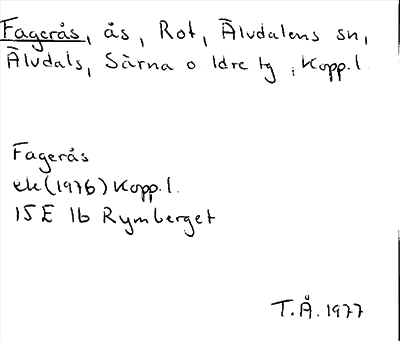 Fagerås, ås, Rot, Älvdalens sn,
Älvdals, Särna o Idre tg, Kopp.l.
Fagerås
ek (1976) Kopp.l.
15E 1b Rymberget
T.Å. 1977